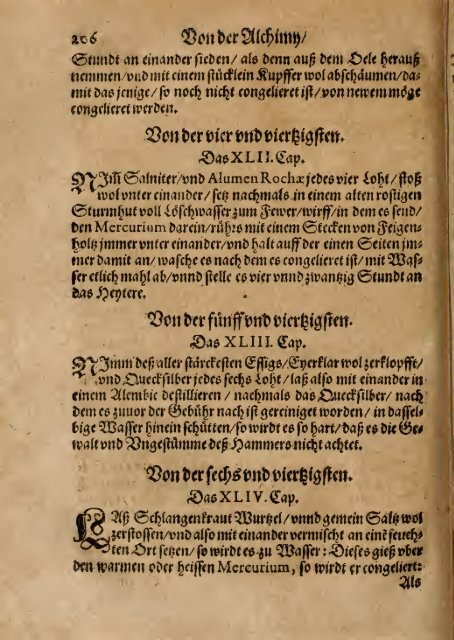 206 Von der Alchimy/
Stundt an einander sieden/ als denn auß dem Oele herauß
nemmen/vnd mit einem stücklein Kupffer wol abschäumen/da-
mit das jenige/ so noch nicht congelieret ist/ von newem möge
congelieret werden.
Von der vier vnd viertzigsten.
Das XLII. Cap.
NJm Salniter/vnd Alumen Rochæ jedes vier Loht/ stoß
wol vnter einander/ setz nachmals in einem alten rostigen
Sturmhut voll Löschwasser zum Fewer/wirff/ in dem es send/
den Mercurium darein/rührs mit einem Stecken von Feigen-
holtz jmmer vnter einander/vnd halt auff der einen Seiten jm-
mer damit an/ wasche es nach dem es congelieret ist/ mit Was-
ser etlich mahl ab/vnnd stelle es vier vnnd zwantzig Stundt an
das Heytere.
Von der fünff vnd viertzigsten.
Das XLIII. Cap.
NJmm deß aller stärckesten Essigs/Eyerklar wol zerklopfft/
vnd Quecksilber jedes sechs Loht/ laß also mit einander in
einem Alembic destillieren/ nachmals das Quecksilber/ nach
dem es zuuor der Gebühr nach ist gereiniget worden/ in dassel-
bige Wasser hinein schütten/so wirdt es so hart/ daß es die Ge-
walt vnd Vngestümme deß Hammers nicht achtet.
Von der sechs vnd viertzigsten.
Das XLIV. Cap.
LAß Schlangenkraut Wurtzel/ vnnd gemein Saltz wol
zerstossen/ vnd also mit einander vermischt an einē feuch-
ten Ort setzen/ so wirdt es zu Wasser: Dieses gieß vber
den warmen oder heissen Mercurium, so wirdt er congeliert:
Als